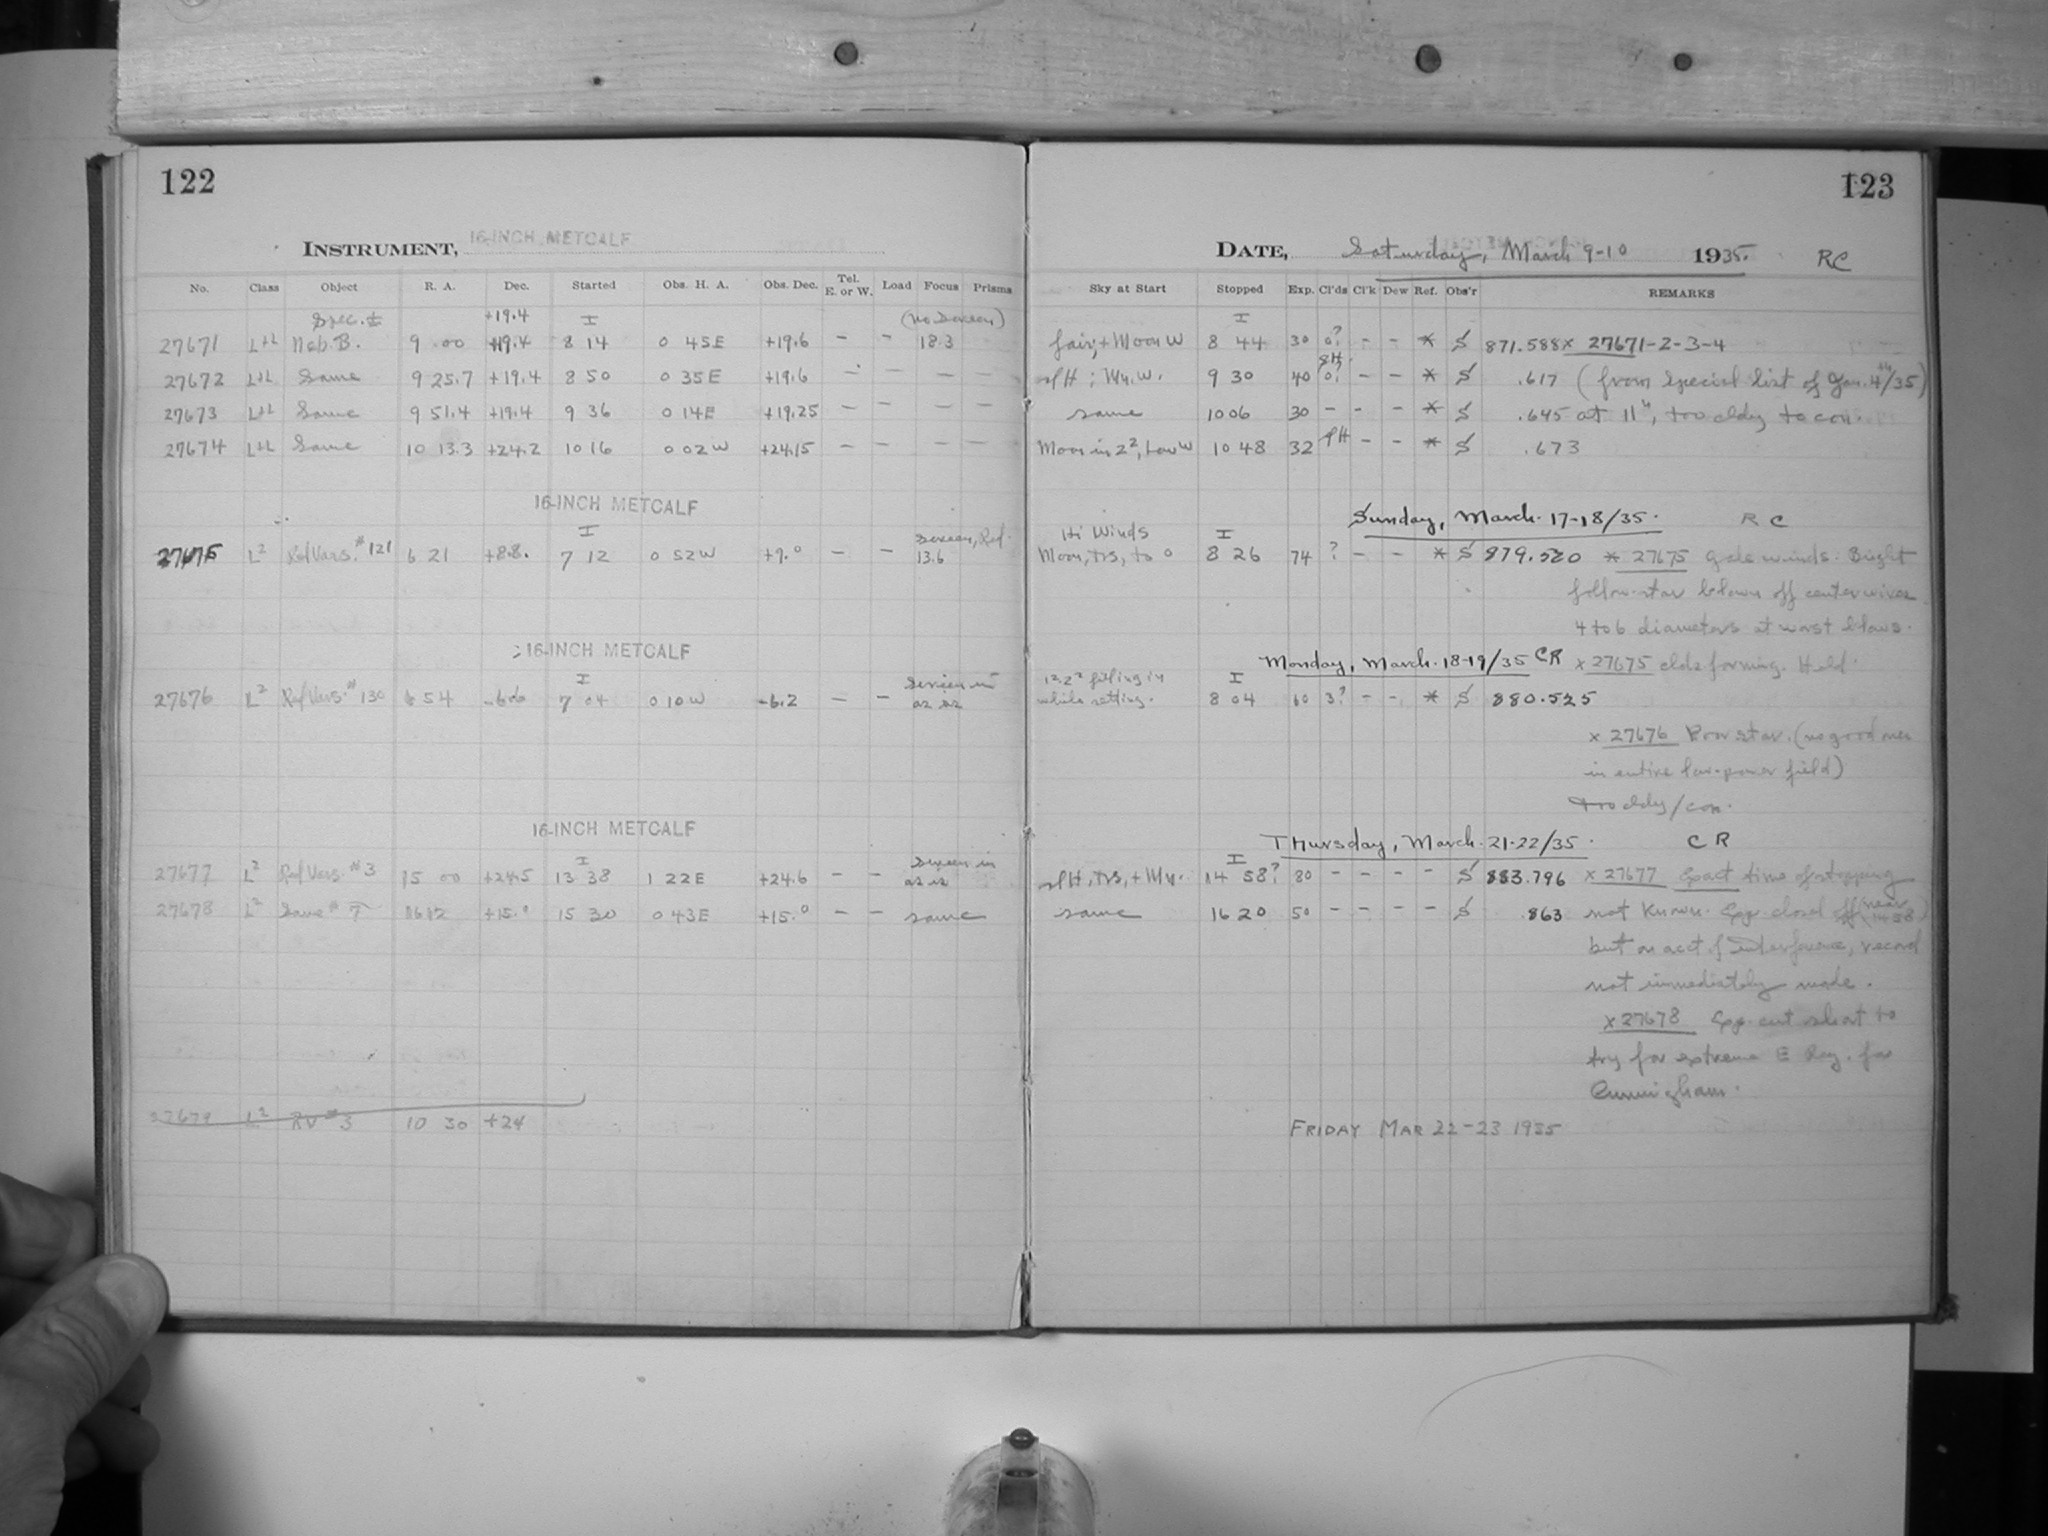 122
INSTRUMENT, 16-INCH METCALF
No. Class Object R. A. Dec. Started Obs. H. A. Obs. Dec. Tel. E. or W. Load Focus Prisms
Spec. +19.4 I (no Screen)
27671 Neb. B. 9 00 +19.4 8 14 0 45E +19.6 - - 18.3
27672 Same 9 25.7 +19.4 8 50 0 35E +19.6 - - - -
27673 Same 9 51.4 +19.4 9 36 0 14E +19.25 - - - -
27674 Same 10 13.3 +24.2 10 16 0 02W +24.15 - - - -
16-INCH METCALF
I Screen, Ref.
27675 L2 Ref Vars. #121 6 21 +8.8. 7 12 0 52W +9.0 - - 13.6
16-INCH METCALF
I Screen in
27676 L2 Ref Vars. #130 6 54 -6.6 7 04 0 10W -6.2 - - as is
16-INCH METCALF
I Screen in
27677 L2 Ref Vars. #3 15 00 +24.5 13 38 1 22E +24.6 - - as is
27678 L2 Same # 7 16 12 +15.0 15 30 0 43E +15.0 - - same
27679 L2 RV #3 10 30 +24
123
DATE, Saturday, March 9-10 1935. RC
Sky at Start Stopped Exp. Cl'ds Cl'k Dew Ref. Obs'r REMARKS
I
fair, + Moon W 8 44 30 0? - - * S 871.588 x 27671-2-3-4
SH; Hy. W. 9 30 40 0? - - * S .617 (from Special list of Jan. 4th/35)
same 10 06 30 - - - * S .645 at 11h, too cldy to con.
Moon in 22, Low W 10 48 32 SH - - * S .673
Sunday, March 17-18/35. R C
Hi Winds I
Moon, trs, to 0 8 26 74 ? - - * S 879.520 * 27675 Gale winds. Bright
follow-star blown off center wires
4 to 6 diameters at worst blows.
Monday, March 18-19/35 CR x 27675 clds forming. Held.
filling in I
while setting. 8 04 60 3? - - * S 880.525
x 27676 Poor star. (no good ones
in entire low-power field)
Too cldy/con.
Thursday, March 21-22/35. C R
I
SH, trs, + Hy. 14 58? 80 - - - - S 883.796 x 27677 Exact time of stopping
same 16 20 50 - - - - S .863 not known. Exp. closed off (near 14 58)
but on acct of Interference, record
not immediately made.
x 27678 Exp. cut short to
try for extreme E Reg. for
Cunningham.
FRIDAY MAR 22-23 1935